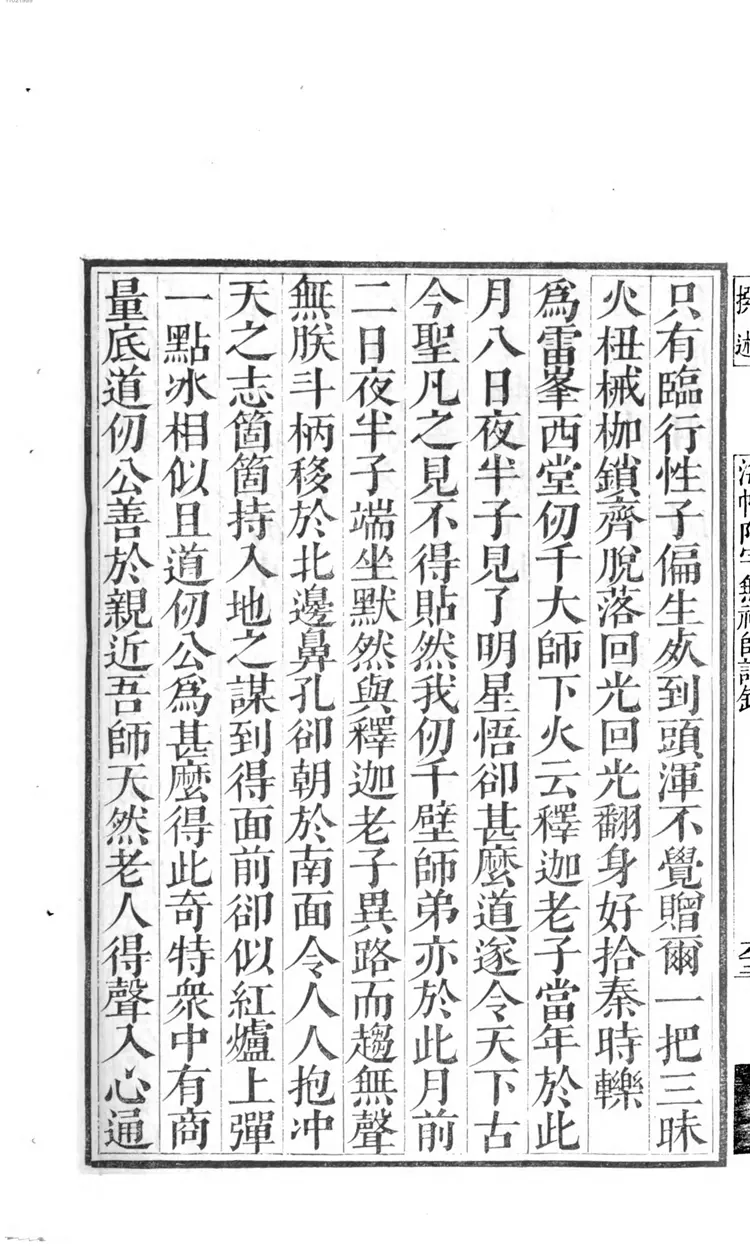 只有臨行性子偏生㡯到頭渾不覺贈爾一把三昧
火杻械枷鎖齊脫落回光回光翻身好拾秦時轢
為雷峯西堂仞千大師下火云釋迦老子當年於此
月八日夜半子見了明星悟卻甚麼道遂令天下古
今聖凡之見不得貼然我仞千壁師弟亦於此月前
二日夜半子端坐默然與釋迦老子異路而趨無聲
無朕斗柄移於北邊鼻孔卻朝於南面令人人抱冲
天之志箇箇持入地之謀到得面前卻似紅爐上彈
一點冰相似且道仞公為甚麼得此奇特衆中有商
量底道仞公善於親近吾師天然老人得聲入心通